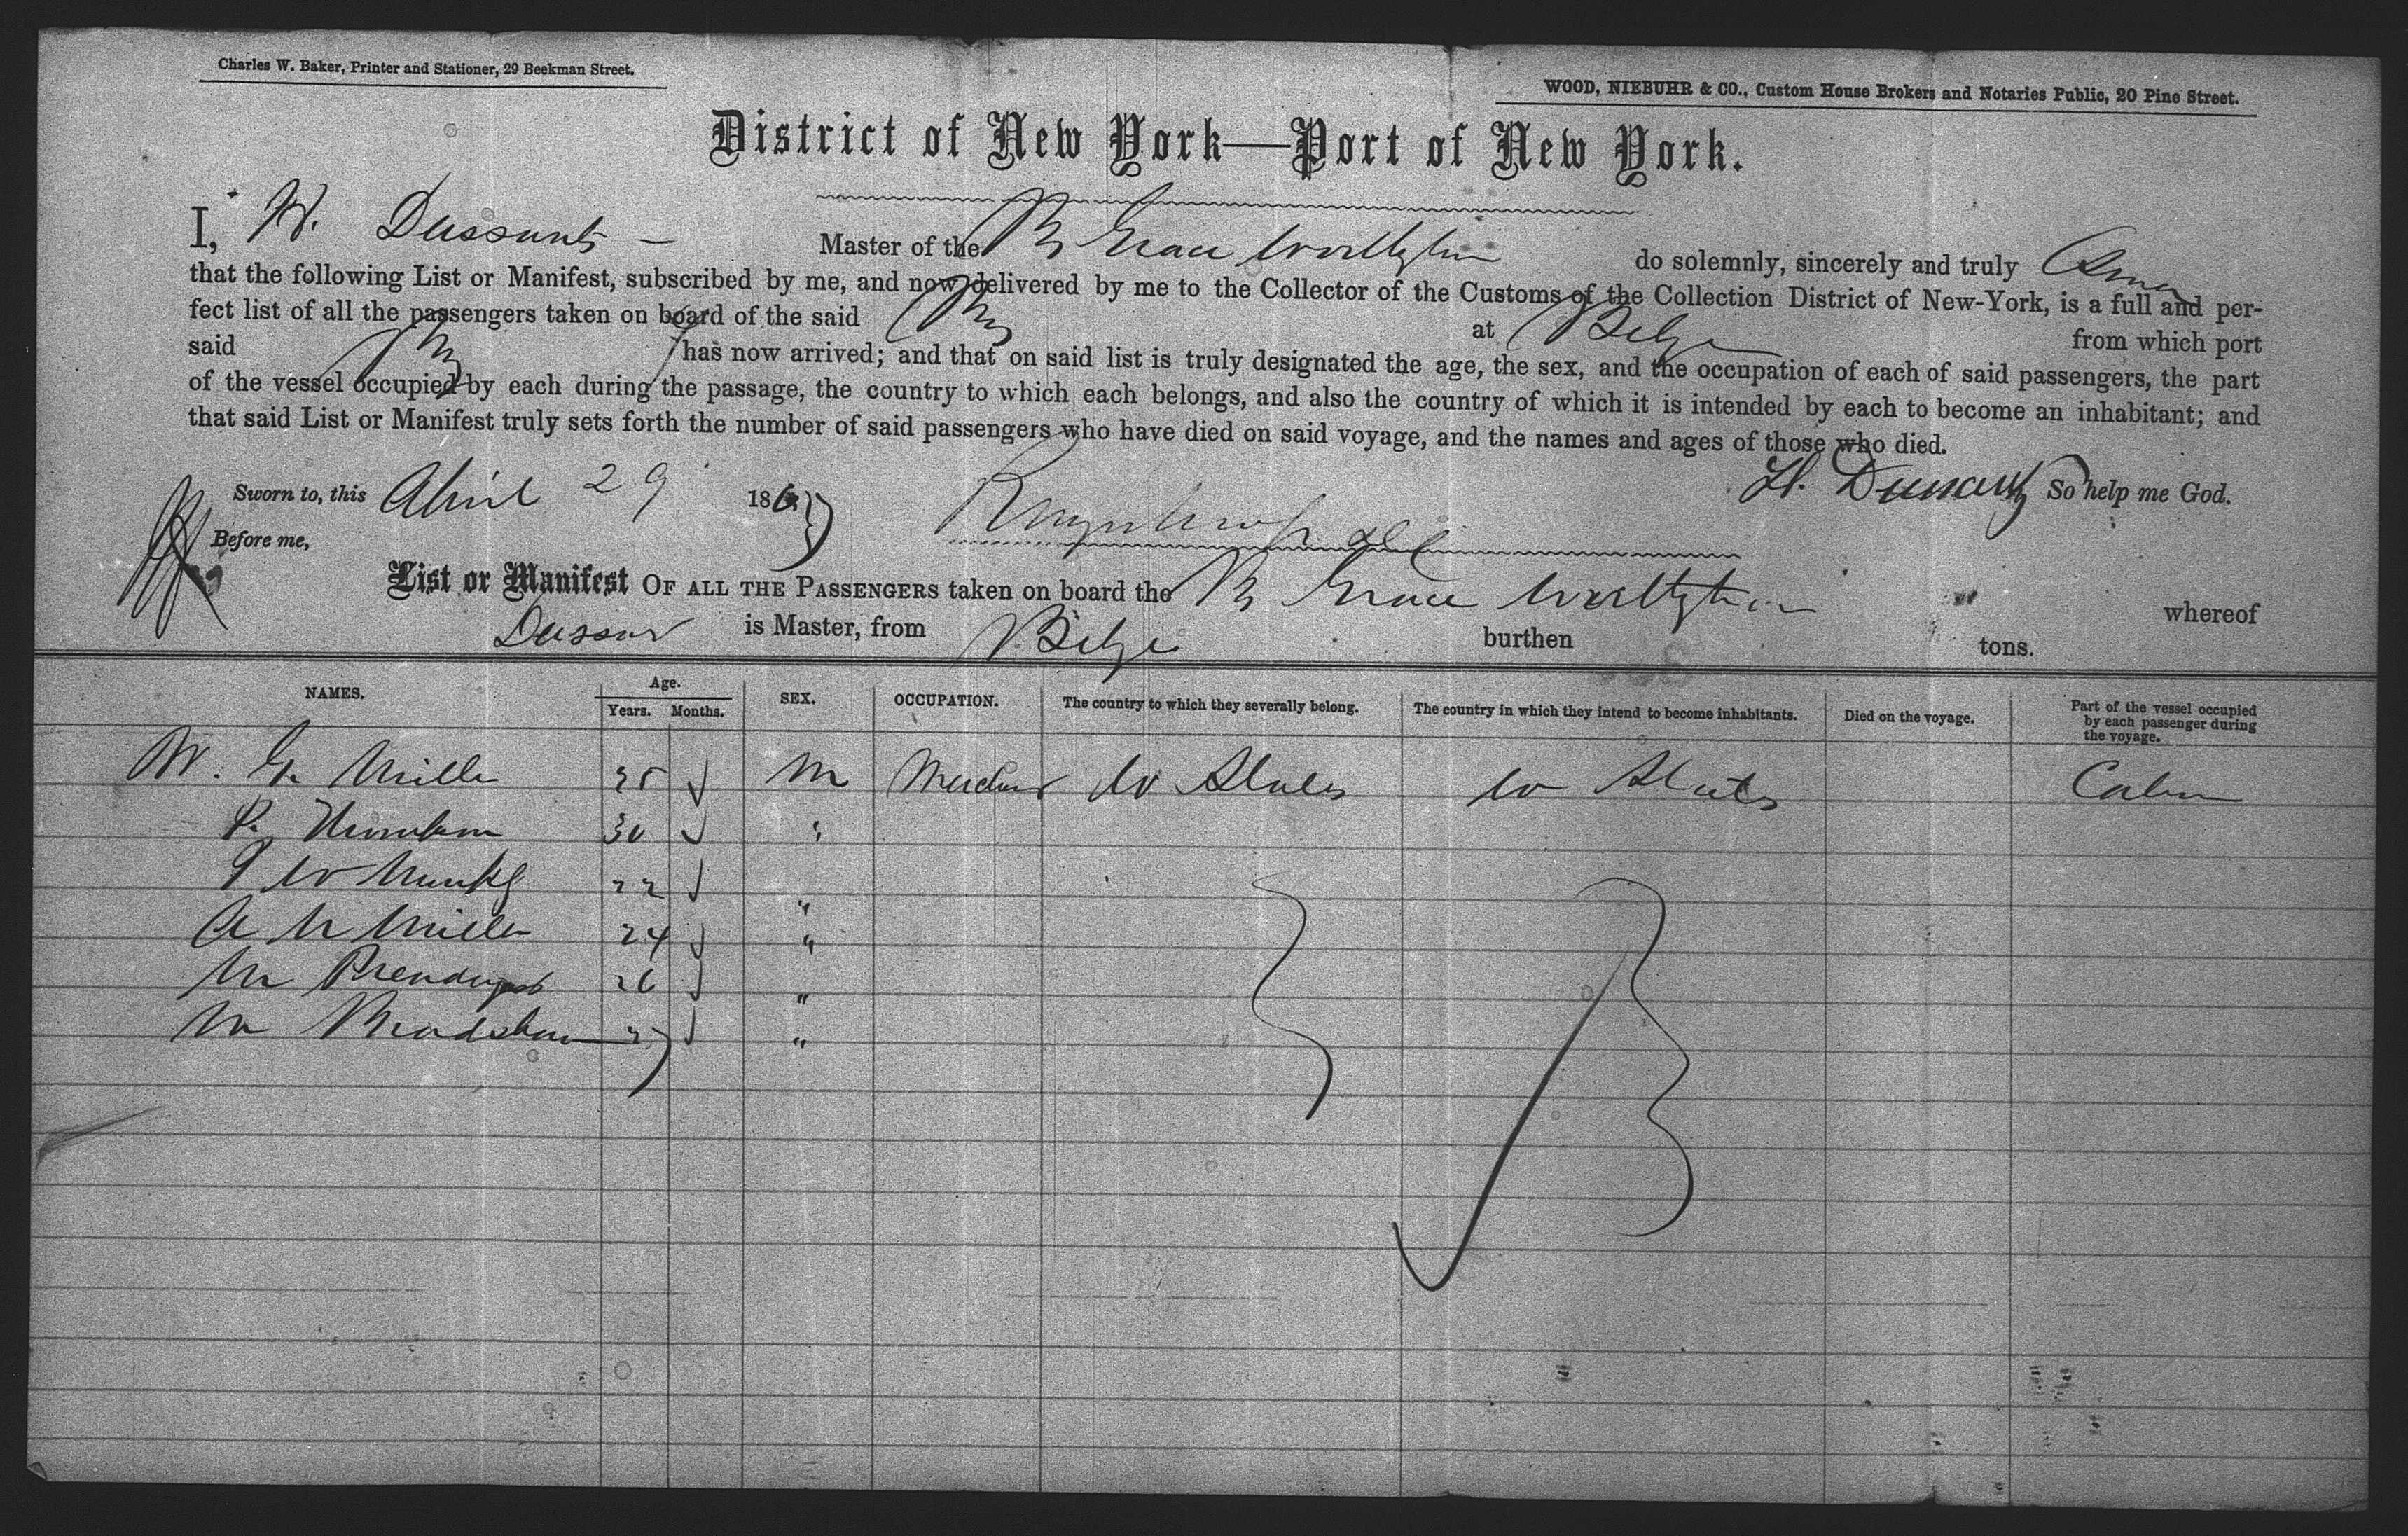 Charles W. Baker, Printer and Stationer, 29 Beekman Street.
WOOD, NIEBUHR & CO., Custom House Brokers and Notaries Public, 20 Pine Street.
District of New York—Port of New York.
I, H. Master of the Grace do solemnly, sincerely and truly
that the following List or Manifest, subscribed by me, and now delivered by me to the Collector of the Customs of the Collection District of New-York, is a full and per-
fect list of all the passengers taken on board of the said at from which port
said has now arrived; and that on said list is truly designated the age, the sex, and the occupation of each of said passengers, the part
of the vessel occupied by each during the passage, the country to which each belongs, and also the country of which it is intended by each to become an inhabitant; and
that said List or Manifest truly sets forth the number of said passengers who have died on said voyage, and the names and ages of those who died.
Sworn to, this April 29 186 H. So help me God.
Before me,
List or Manifest OF ALL THE PASSENGERS taken on board the Grace whereof
is Master, from burthen tons.
NAMES. Age. Years. Months. SEX. OCCUPATION. The country to which they severally belong. The country in which they intend to become inhabitants. Died on the voyage. Part of the vessel occupied by each passenger during the voyage.
W. G. Miller M U States U States Cabin
P. 30 "
22 "
A M Miller 24 "
M Prendergast 26 "
M Bradshaw "